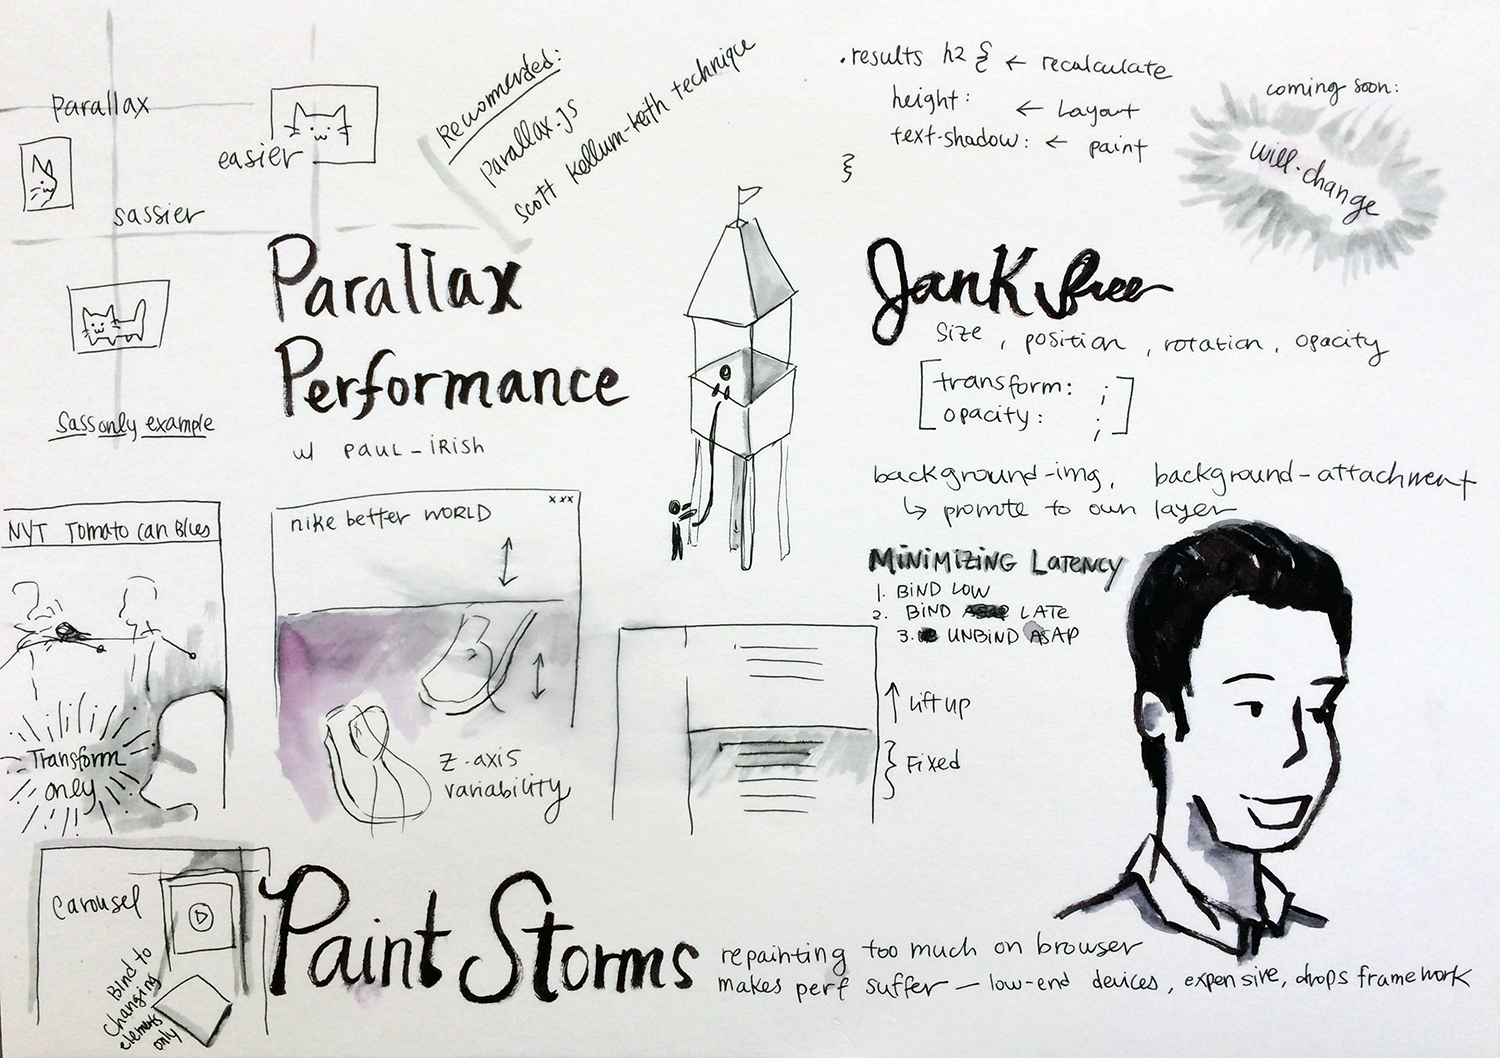 parallax
easier
sassier
Sass only example
Recommended:
Parallax.js
Scott Kellum-Keith technique
.results h2 { ← recalculate
height: ← Layout
text-shadow: ← paint
}
coming soon:
will-change
Parallax
Performance
w/ PAUL_IRISH
Jank free
size, position, rotation, opacity
[transform: ;
opacity: ;]
background-img, background-attachment
↳ promote to own layer
MINIMIZING LATENCY
1. BIND LOW
2. BIND LATE
3. UNBIND ASAP
NYT Tomato can Blues
Transform
only
nike better WORLD
xxx
z-axis
variability
↑ Lift up
} Fixed
Carousel
Bind to
Changing
elements
only
Paint Storms
repainting too much on browser
makes perf suffer — low-end devices, expensive, drops framework